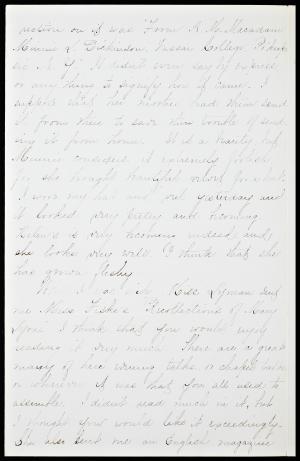 rection on it was "From R. McMacadam
Minnie S. Dickinson Vassar College Po'keep
sie N. Y." It didn't even say by express
or any thing to signify how it came. I
suppose that her mother had them send
it from there to save him trouble of send
ing it from home. It is a beauty but
Minnie considers it extremely foolish
for she bought beautiful velvet for what
I wore my hat and out yesterday and
it looked very pretty and becoming
is very becoming indeed and
she looks very well. I think that she
has grown fleshy.
Miss Lyman sent
me Miss Fiske's Recollections of Mary
Lyon. I think that you would enjoy
reading it very much. There are a great
many of her evening talks, or chapel talks
or wherever it was that you all used to
assemble. I didn't read much in it, but
I thought you would like it exceedingly.
She also sent me an English magazine